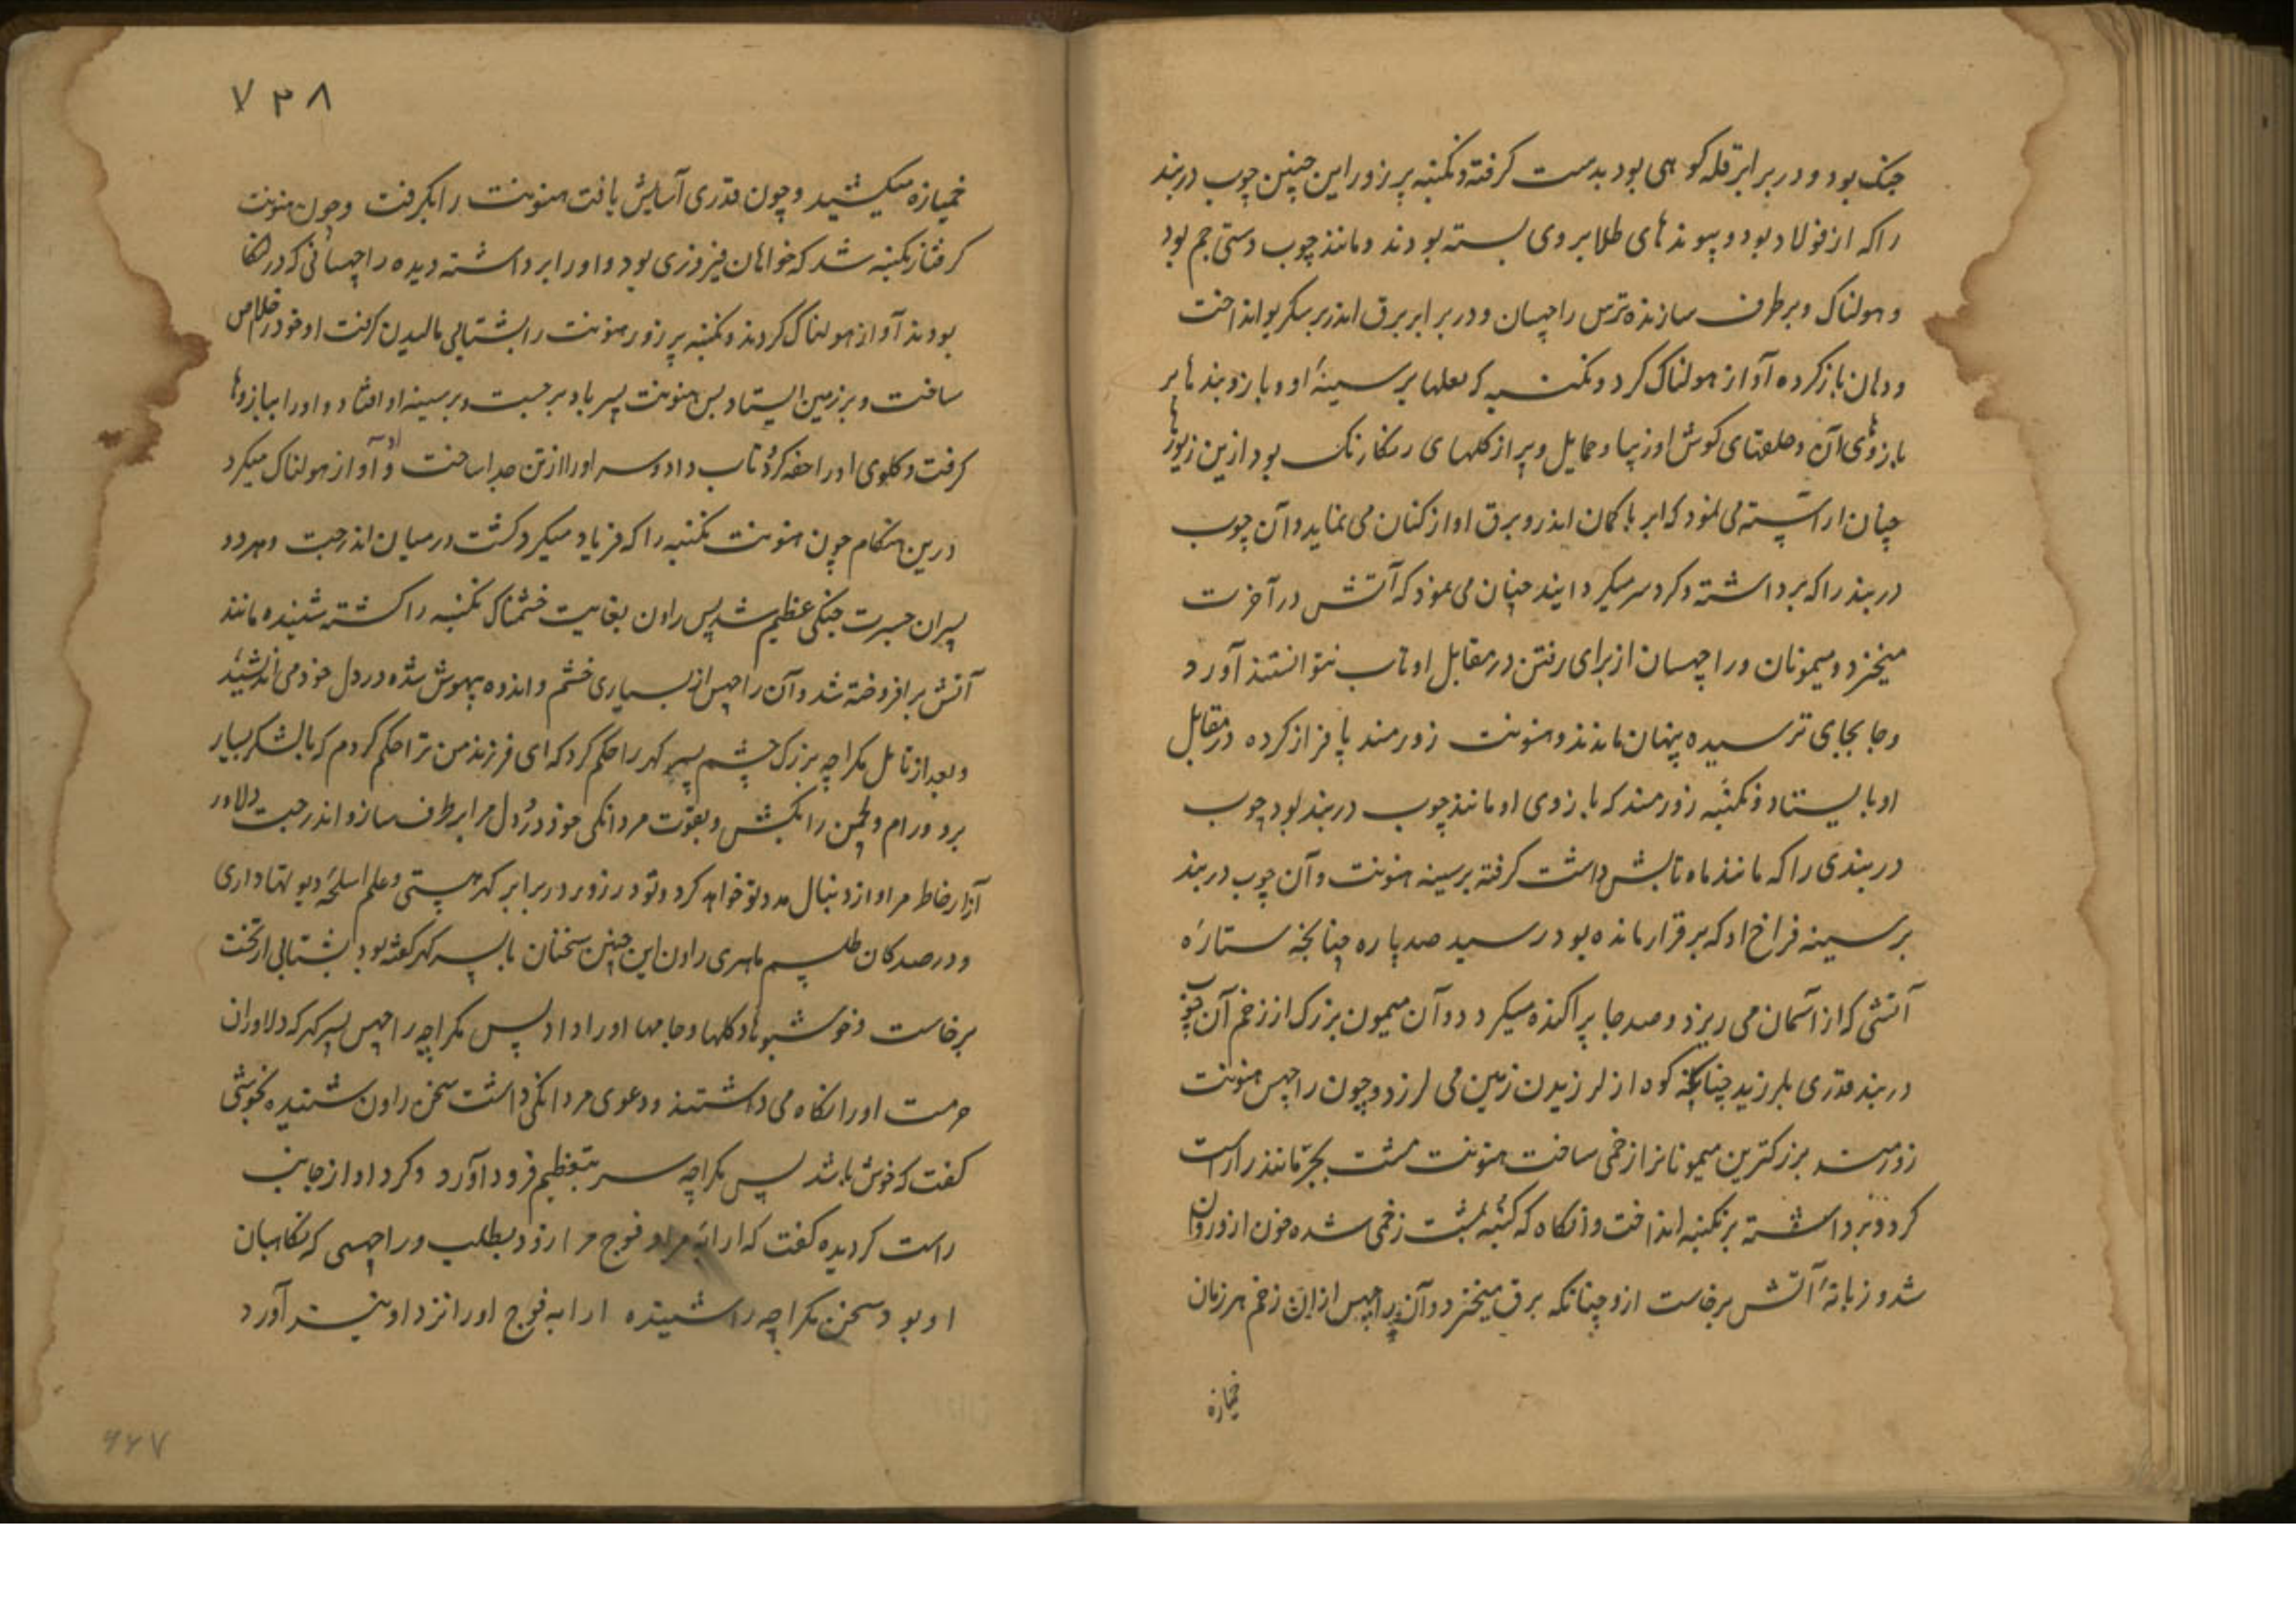 جنک بود و در برابر قله کوهی بود بدست کرفته و نکنبه پر زور این چنین چوب دربند
را که از فولاد بود و پیوندهای طلا بروی بسته بودند و مانند چوب دستی جم بود
و هولناک و برطرف سازنده ترس راچهسان و در برابر برق اندر بر سکر بو انداخت
و دهان باز کرده آواز هولناک کرد و نکنبه که لعلها بر سینهٔ او و بازوبندها بر
بازوی آن و حلقهای کوش او زیبا و حمایل و پر از کلهای رنکارنک بود ازین زیورها
چنان اراسته می نمود که ابر با کمان اندر و برق اواز کنان می نماید و آن چوب
دربند را که برداشته و کرد سر میکردانید چنان می نمود که آتش در آخرت
میخیزد و میمونان و راچهسان از برای رفتن در مقابل او تاب نتوانستند آورد
و جابجای ترسیده پنهان ماندند و هنونت زورمند پا فراز کرده در مقابل
او بایستاد و نکنبه زورمند که بازوی او مانند چوب دربند بود چوب
دربندی را که مانند ماه تابش داشت کرفته بر سینه هنونت و آن چوب دربند
بر سینه فراخ او که برقرار مانده بود رسید صد پاره چنانچه ستارهٔ
آتشی که از آسمان می ریزد و صد جا پراکنده میکردد و آن میمون بزرک از زخم آن چوب
دربند قدری بلرزید چنانکه کوه از لرزیدن زمین می لرزد و چون راچهس هنونت
زورمند بزرکترین میمونانرا زخمی ساخت هنونت مشت بجر مانند را راست
کرد و برداشته بر نکنبه انداخت و انکاه که نکنبه بمشت زخمی شده خون ازو روان
شد و زبانهٔ آتش برخاست ازو چنانکه برق میخیزد و آن راچهس از ان زخم هر زمان
خمیازه
۷۳۸
خمیازه میکشید و چون قدری آسایش یافت هنونت را بکرفت و چون هنونت
کرفتار نکنبه شد که خواهان فیروزی بود و او را برداشته دیده راچهسانی که در لنکا
بودند آواز هولناک کردند و نکنبه پر زور هنونت را بشتابی مالیدن کرفت او خود را خلاص
ساخت و بر زمین ایستاد پس هنونت پسر باد برجست و بر سینه او افتاد و او را ببازوها
کرفت و کلوی او را خفه کرده تاب داد و سر او را از تن جدا ساخت و او آواز هولناک میکرد
درین هنکام چون هنونت نکنبه را که فریاد میکرد کشت در میان اندرجت و هر دو
پسران جسرت جنکی عظیم شد پس راون بغایت خشمناک نکنبه را کشته شنیده مانند
آتش برافروخته شد و آن راچهس از بسیاری خشم و اندوه بیهوش شده در دل خود می اندیشید
و بعد از تامل مکراچه بزرک چشم پسر کهر را حکم کرد که ای فرزند من ترا حکم کردم که با لشکر بسیار
برو و رام و لچمن را بکش و بقوت مردانکی خود درد دل مرا برطرف ساز و اندرجت دلاور
آزار خاطر مرا و از دنبال مدد تو خواهد کرد و تو در زور در برابر کهر هستی و علم اسلحهٔ دیوتها داری
و در صد کان طلسم ماهری راون این چنین سخنان با پسر کهر کفته بود بشتابی از تخت
برخاست و خوشبوها و کلها و جامها او را داد پس مکراچه راچهس پسر کهر که دلاوران
حرمت او را نکاه می داشتند و دعوی مردانکی داشت سخن راون شنیده بخوشی
کفت که خوش باشد پس مکراچه سر بتعظیم فرود آورد و کرد او از جانب
راست کردیده کفت که ارابهٔ مرا و فوج مرا زود بطلب و راچهسی که نکاهبان
او بود سخن مکراچه را شنیده ارابه فوج او را نزد او بیشتر آورد
۹۶۷